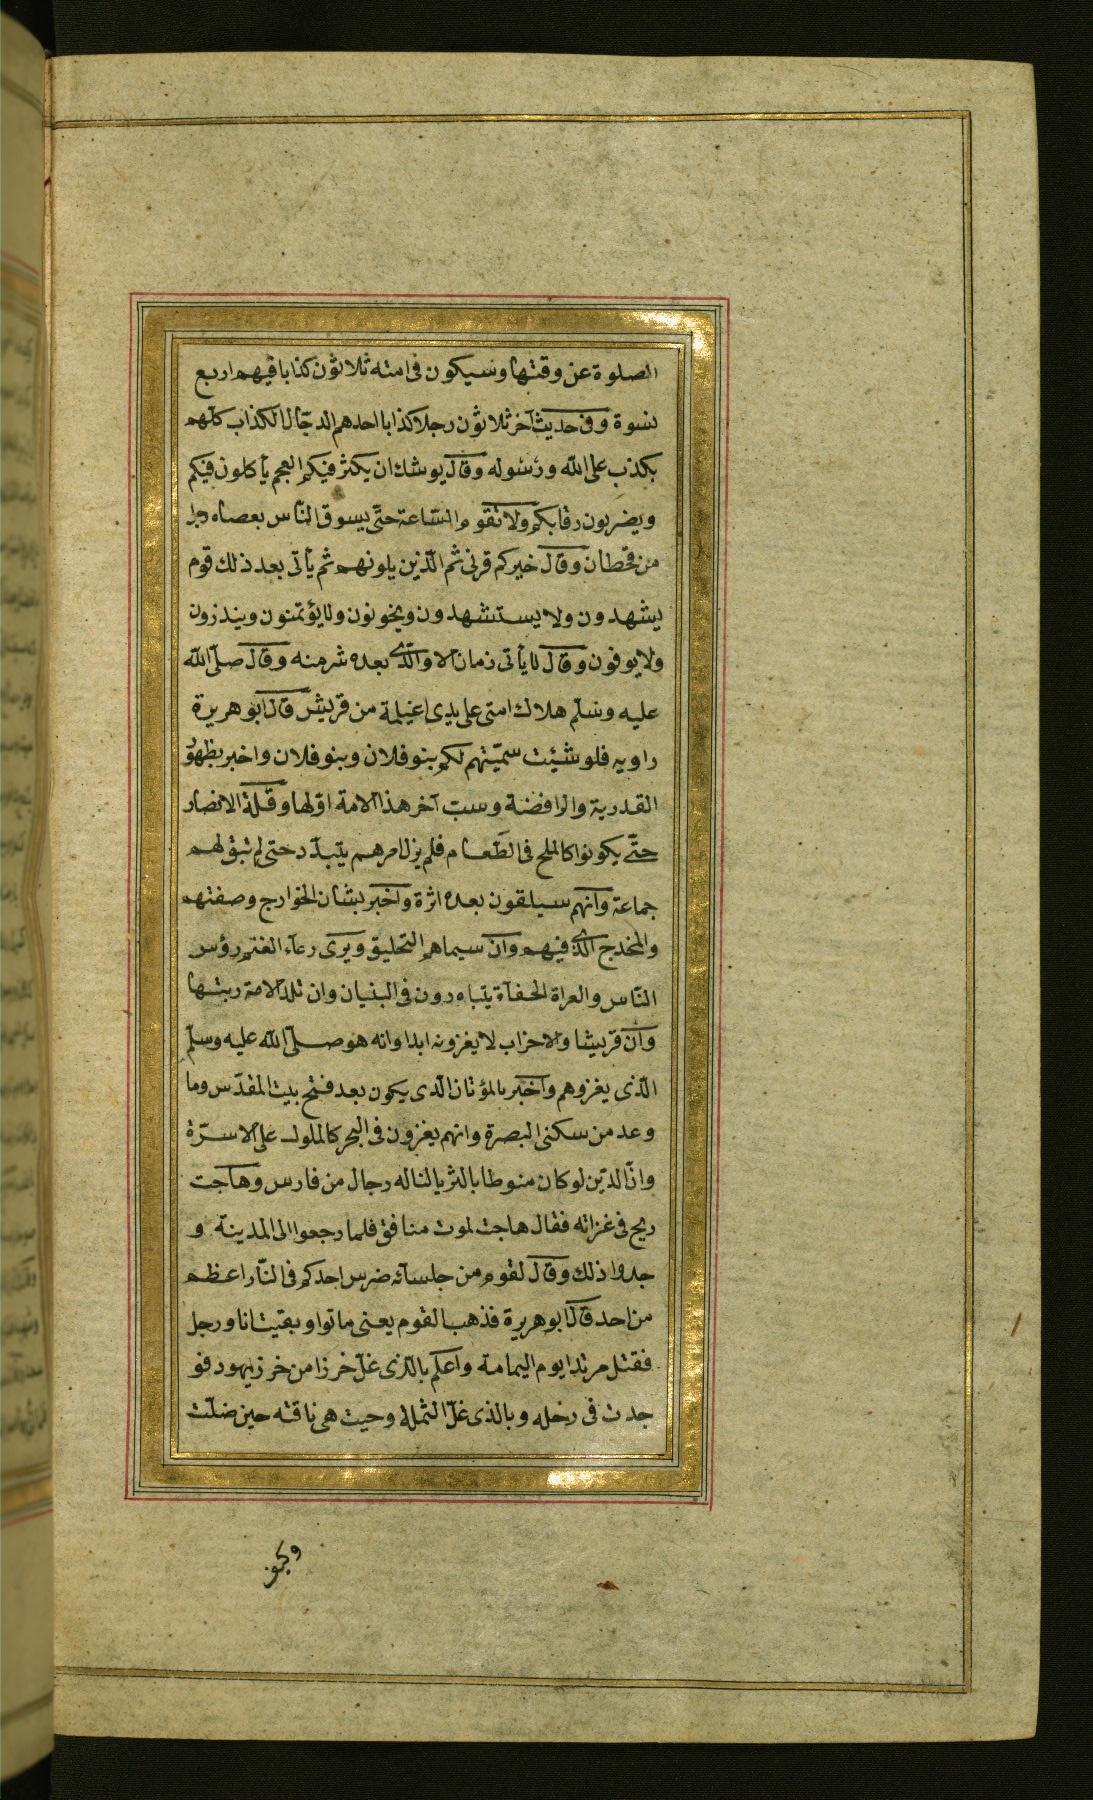 الصلوة عن وقتها وسيكون فى امته ثلاثون كذابا فيهم اربع
نسوة وفى حديث آخر ثلاثون رجلا كذابا احدهم الدجّال الكذاب كلّهم
يكذب على الله ورسوله وقال يوشك ان يكثر فيكم العجم يأكلون فيكم
ويضربون رقابكم ولا تقوم السّاعة حتّى يسوق النّاس بعصاه رجل
من قحطان وقال خيركم قرنى ثم الّذين يلونهم ثم يأتى بعد ذلك قوم
يشهدون ولا يستشهدون ويخونون ولا يؤتمنون وينذرون
ولا يوفون وقال لا يأتى زمان الا والّذى بعده شر منه وقال صلّى الله
عليه وسلّم هلاك امتى على يدى اغيلمة من قريش قال ابو هريرة
راويه فلو شئت سمّيتهم لكم بنو فلان وبنو فلان واخبر بظهور
القدرية والرافضة وسبّ آخر هذه الامة اوّلها وقلّة الانصار
حتّى يكونوا كالملح فى الطّعام فلم يزل امرهم يتبدّد حتى لم تبق لهم
جماعة وانّهم سيلقون بعده اثرة واخبر بشان الخوارج وصفتهم
والمخدج الّذى فيهم وانّ سيماهم التحليق ويرى رعآء الغنم رؤس
النّاس والعراة الحفآة يتباهرون فى البنيان وان تلد الامة ربتها
وانّ قريشا والاحزاب لا يغزونه ابدا وانه هو صلّى الله عليه وسلّم
الّذى يغزوهم واخبر بالمؤتان الّذى يكون بعد فتح بيت المقدّس وما
وعد من سكنى البصرة وانهم يغزون فى البحر كالملوك على الاسرّة
وانّ الدّين لو كان منوطا بالثريا لناله رجال من فارس وهاجت
ريح فى غزاته فقال هاجت لموت منافق فلما رجعوا الى المدينة و
جدوا ذلك وقال لقوم من جلسائه ضرس احدكم فى النّار اعظم
من احد قال ابو هريرة فذهب القوم يعنى ماتوا وبقيت انا ورجل
فقتل مرتدا يوم اليمامة واعلم بالّذى غلّ خرزا من خرز يهود فو
جدت فى رحله وبالذى غلّ الشملة وحيث هى ناقته حين ضلّت
وكيف